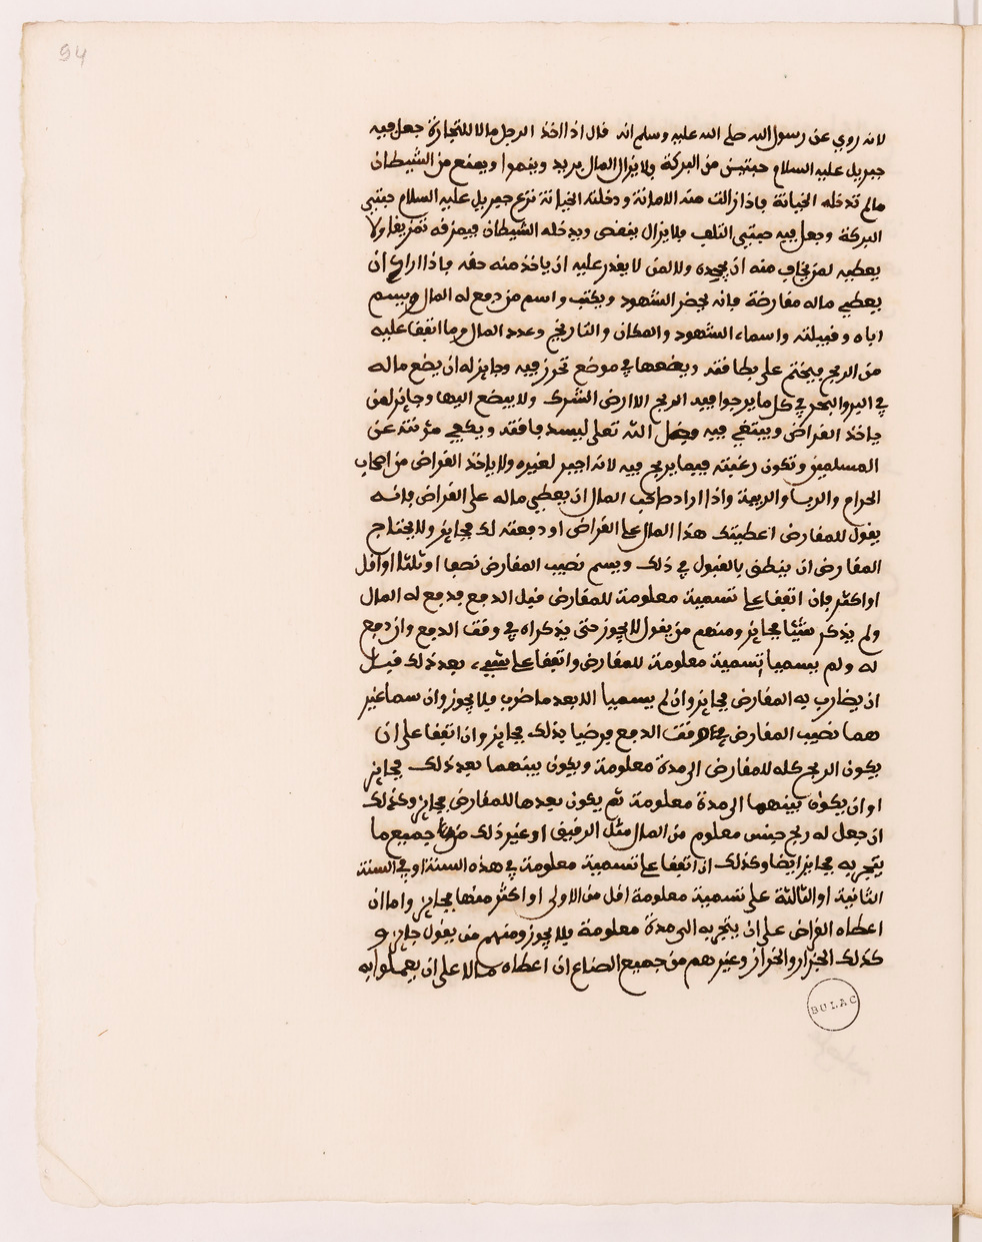 94
لانه روي عن رسول الله صلى الله عليه وسلم انه قال اذا اخذ الرجل مالا للتجارة جعل فيه
جبريل عليه السلام حبتين من البركة فلا يزال المال يزيد وينموا ويمنع من الشيطان
مالم تدخله الخيانة فاذا زالت منه الامانة ودخلته الخيانة نزع جبريل عليه السلام حبتي
البركة وجعل فيه حبتي التلف فلا يزال ينقص ويدخله الشيطان فيمزقه تمزيقا ولا
يعطيه لمن يخاف منه ان يجحده ولا لمن لا يقدر عليه ان ياخذ منه حقه فاذا اراد ان
يعطي ماله مقارضة فانه يحضر الشهود ويكتب واسم من دفع له المال ويسم
اباه وقبيلته واسماء الشهود والمكان والتاريخ وعدد المال وما اتفقا عليه
من الربح فيختم على بطاقته ويضعها في موضع تحرز فيه وجايز له ان يضع ماله
في البر والبحر في كل ما يرجوا فيه الربح الا ارض الشرك ولا يبيضع اليها وجايز لمن
ياخذ القراض ويبتغي فيه فضل الله تعلى ليسد فاقته ويكفي مؤنته عن
المسلمين وتكون رغبته فيما يربح فيه لانه اجير لغيره ولا ياخذ القراض من اصحاب
الحرام والربا والريبة واذا اراد صاحب المال ان يعطي ماله على القراض فانه
يقول للمقارض اعطيتك هذا المال على القراض او دفعته لك فجايز ولا يحتاج
المقارض ان ينطق بالقبول في ذلك ويسم نصيب المقارض نصفا او ثلثا او اقل
او اكثر فان اتفقا على تسمية معلومة للمقارض قبل الدفع فدفع له المال
ولم يذكر شيئا فجايز ومنهم من يقول لا يجوز حتى يذكراه في وقت الدفع وان دفع
له ولم يسميا تسمية معلومة للمقارض واتفقا على شيء بعد ذلك قبل
ان يضارب به المقارض فجايز وان لم يسميا الا بعد ما ضرب فلا يجوز وان سما غير
هما نصيب المقارض وقت الدفع فرضيا بذلك فجايز وان اتفقا على ان
يكون الربح كله للمقارض الى مدة معلومة ويكون بينهما بعد ذلك فجايز
او ان يكون بينهما الى مدة معلومة ثم يكون بعدها للمقارض فجايز وكذلك
ان جعل له ربح جنس معلوم من المال مثل الرقيق او غير ذلك جميع ما
يتجر به فجايز ايضا وكذلك ان اتفقا على تسمية معلومة في هذه السنة او في السنة
الثانية او الثالثة على تسمية معلومة اقل من الاولى او اكثر منها فجايز واما ان
اعطاه القراض على ان يتجر به الى مدة معلومة فلا يجوز ومنهم من يقول جايز و
كذلك الجزار والخراز وغيرهم من جميع الصناع ان اعطاه مالا على ان يعملوا به
BULAC